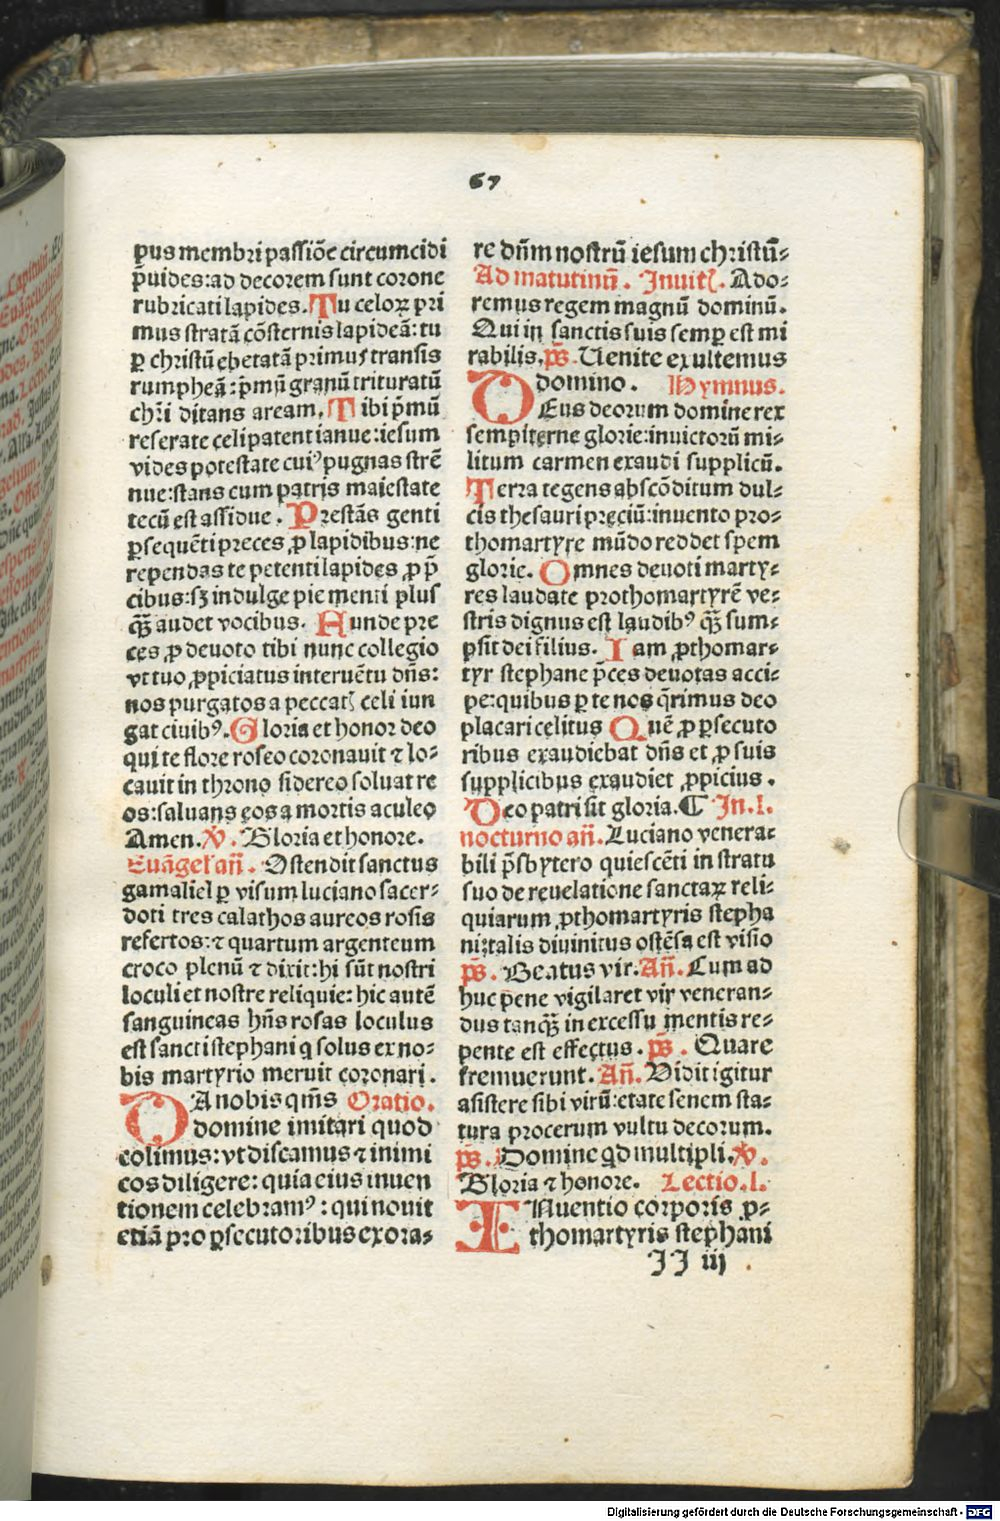 67
pus membri passiõe circumcidi
p̃uides: ad decorem sunt corone
rubricati lapides. Tu celoꝝ pri
mus stratã cõsternis lapideã: tu
ꝑ christũ ebetatã primus transis
rumpheã: p̃mũ granũ trituratũ
ch̃ꝛi ditans aream. Tibi p̃mũ
reserate celi patent ianue: iesum
vides potestate cuiꝰ pugnas strẽ
nue: stans cum patris maiestate
tecũ est assidue. Prestãs genti
ꝑsequẽti preces ꝓ lapidibus: ne
rependas te petenti lapides ꝓ p̃
cibus: sꝫ indulge pie menti plus
qꝫ̃ audet vocibus. Hunde pre
ces ꝓ deuoto tibi nunc collegio
vt tuo ꝓpiciatus interuẽtu dñs:
nos purgatos a peccatꝭ celi iun
gat ciuibꝰ. Gloria et honor deo
qui te flore roseo coronauit ⁊ lo-
cauit in throno sidereo soluat re
os: saluans eos a mortis aculeo
Amen. ꝟ. Gloria et honore.
Euãgeł añ. Ostendit sanctus
gamaliel ꝑ visum luciano sacer-
doti tres calathos aureos rosis
refertos: ⁊ quartum argenteum
croco plenũ ⁊ dixit: hi sũt nostri
loculi et nostre reliquie: hic autẽ
sanguineas hñs rosas loculus
est sancti stephani q solus ex no-
bis martyrio meruit coronari.
DA nobis qm̃s Oratio.
domine imitari quod
colimus: vt discamus ⁊ inimi
cos diligere: quia eius inuen
tionem celebramꝰ: qui nouit
etiã pro ꝑsecutoribus exora-
re dñm nostrũ iesum christũ-
Ad matutinũ. Inuitꝭ. Ado-
remus regem magnũ dominũ.
Qui in sanctis suis semꝑ est mi
rabilis. ps̃. Uenite exultemus
domino. Hymnus.
DEus deorum domine rex
sempiterne glorie: inuictorũ mi-
litum carmen exaudi supplicũ.
Terra tegens abscõditum dul-
cis thesauri preciũ: inuento pro-
thomartyre mũdo reddet spem
glorie. Omnes deuoti marty-
res laudate prothomartyrẽ ve-
stris dignus est laudibꝰ qꝫ̃ sum-
psit dei filius. Iam ꝓthomar-
tyr stephane p̃ces deuotas acci-
pe: quibus ꝑ te nos q̃rimus deo
placari celitus Quẽ ꝓ ꝑsecuto
ribus exaudiebat dñs et ꝓ suis
supplicibus exaudiet ꝓpicius.
Deo patri sit gloria. ¶ In .I.
nocturno añ. Luciano venera-
bili p̃sbytero quiescẽti in stratu
suo de reuelatione sanctaꝝ reli-
quiarum ꝓthomartyris stepha
ni: talis diuinitus ostẽsa est visio
ps̃. Beatus vir. Añ. Cum ad
huc pene vigilaret vir veneran-
dus tanqꝫ̃ in excessu mentis re-
pente est effectus. ps̃. Quare
fremuerunt. Añ. Vidit igitur
asistere sibi virũ: etate senem sta-
tura procerum vultu decorum.
ps̃. Domine qd multipli. ꝟ.
Gloria ⁊ honore. Lectio .I.
INuentio corporis ꝓ-
thomartyris stephani
II iij
Digitalisierung gefördert durch die Deutsche Forschungsgemeinschaft - DFG